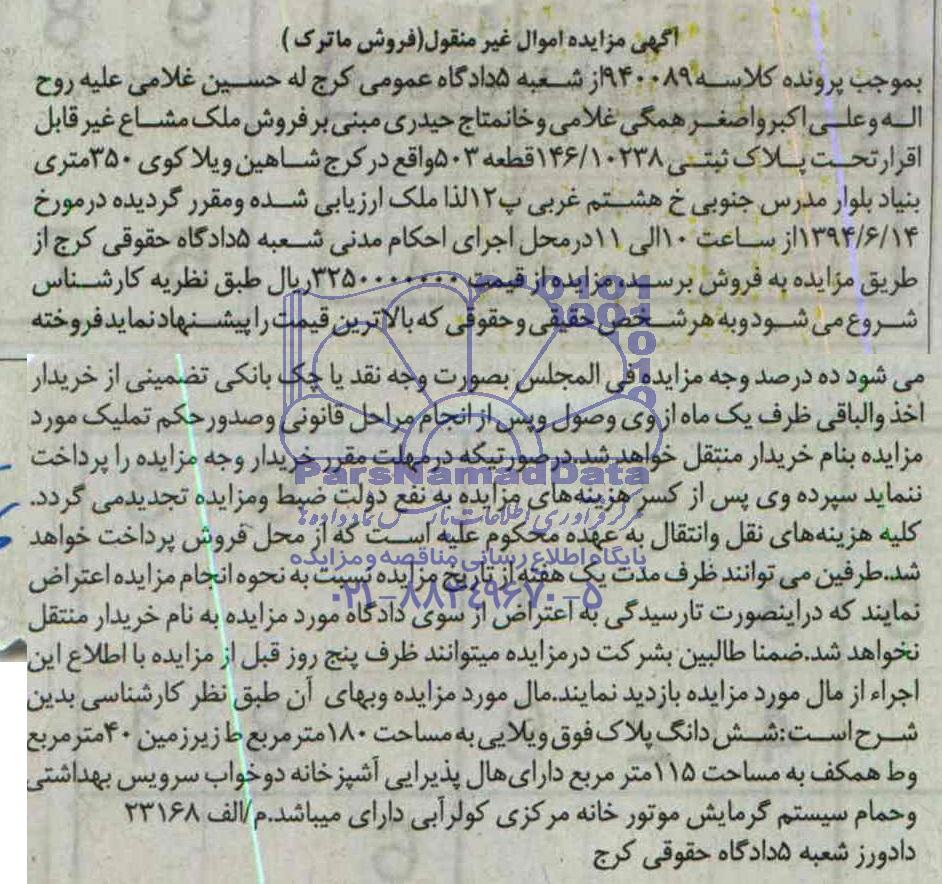 آگهی مزایده اموال غیر منقول(فروش ماترک )
بموجب پرونده کلاسه ۹۴۰۰۸۹از شعبه ۵دادگاه عمومی کرج له حسین غلامی علیه روح
اله وعلی اکبرواصغر همگی غلامی وخانمتاج حیدری مبنی بر فروش ملک مشاع غیر قابل
اقرارتحت پلاک ثبتی ۱۴۶/۱۰۲۳۸قطعه ۵۰۳واقع در کرج شاهین ویلا کوی ۳۵۰متری
بنیاد بلوار مدرس جنوبی خ هشتم غربی پ۱۲لذا ملک ارزیابی شده ومقرر گردیده درمورخ
۱۳۹۴/۶/۱۴از ساعت ۱۰الی ۱۱درمحل اجرای احکام مدنی شعبه ۵دادگاه حقوقی کرج از
طریق مزایده به فروش برسد، مزایده از قیمت ۳۲۵۰۰۰۰۰۰۰ریال طبق نظریه کارشناس
شروع می شود وبه هر شخص حقیقی وحقوقی که بالاترین قیمت را پیشنهاد نماید فروخته
می شود ده درصد وجه مزایده فی المجلس بصورت وجه نقد یا چک بانکی تضمینی از خریدار
اخذ والباقی ظرف یک ماه از وی وصول وپس از انجام مراحل قانونی وصدور حکم تملیک مورد
مزایده بنام خریدار منتقل خواهد شد.درصورتیگه درمهلت مقرر خریدار وجه مزایده را پرداخت
ParsNamadData
ننماید سپرده وی پس از کسر هزینه‌های مزایده به نفع دولت ضبط ومزایده تجدیدمی گردد.
مرکز فرآوری اطلاعات پارس نماد داده‌ها
کلیه هزینه‌های نقل وانتقال به عهده محکوم علیه است که از محل فروش پرداخت خواهد
پایگاه اطلاع رسانی مناقصه و مزایده
شد.طرفین می توانند ظرف مدت یک هفته از تاریخ مزایده نسبت به نحوه انجام مزایده اعتراض
۰۲۱-۸۸۳۴۹۶۷۰-۵
نمایند که دراینصورت تارسیدگی به اعتراض از سوی دادگاه مورد مزایده به نام خریدار منتقل
نخواهد شد.ضمنا طالبین بشرکت درمزایده میتوانند ظرف پنج روز قبل از مزایده با اطلاع این
اجراء از مال مورد مزایده بازدید نمایند.مال مورد مزایده وبهای آن طبق نظر کارشناسی بدین
شرح است:شش دانگ پلاک فوق ویلایی به مساحت ۱۸۰مترمربع ط زیرزمین ۴۰مترمربع
وط همکف به مساحت ۱۱۵متر مربع دارای هال پذیرایی آشپزخانه دوخواب سرویس بهداشتی
وحمام سیستم گرمایش موتور خانه مرکزی کولرآبی دارای میباشد.م/الف ۲۳۱۶۸
دادورز شعبه ۵دادگاه حقوقی کرج